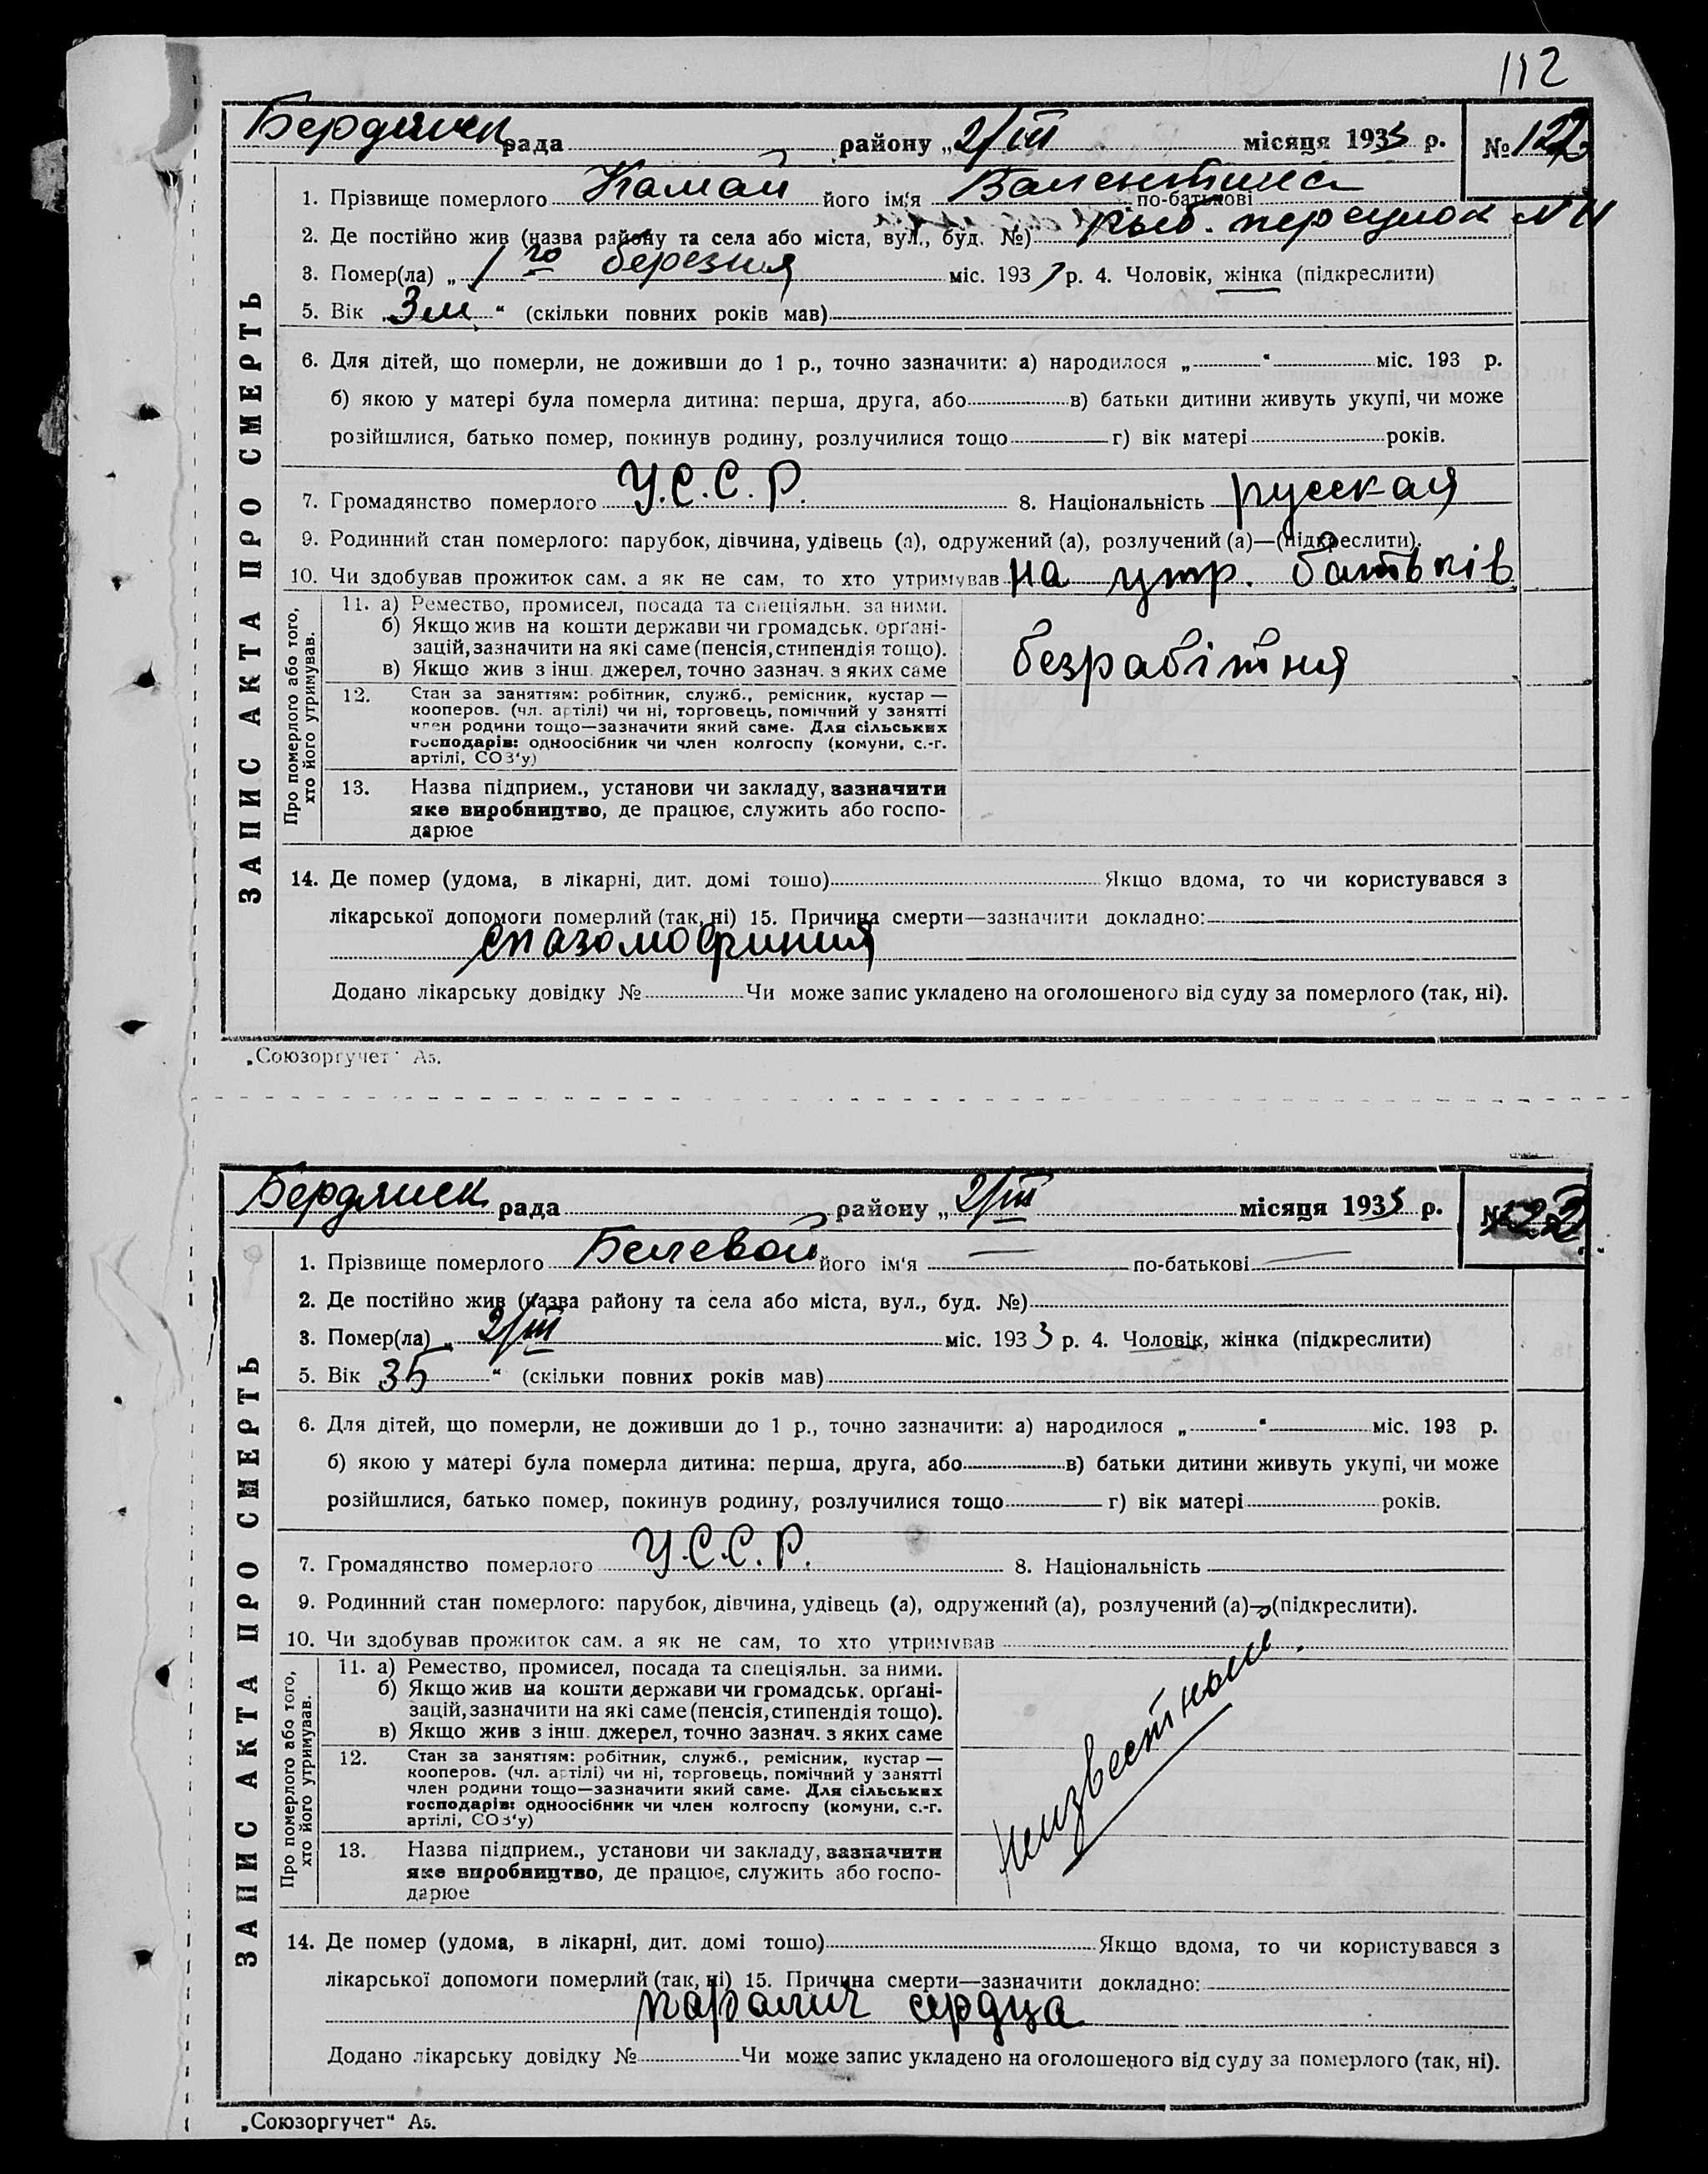 112
Бердянск рада району „2/III місяця 1933 р. № 122
1. Прізвище померлого Камай його ім'я Валентина по-батькові
2. Де постійно жив (назва району та села або міста, вул., буд. №) рыб. переулок N 11
3. Помер(ла) „ 1го березня міс. 193 р. 4. Чоловік, жінка (підкреслити)
5. Вік „3 м “ (скільки повних років мав)
6. Для дітей, що померли, не доживши до 1 р., точно зазначити: а) народилося „ “ міс. 193 р.
б) якою у матері була померла дитина: перша, друга, або в) батьки дитини живуть укупі, чи може
розійшлися, батько помер, покинув родину, розлучилися тощо г) вік матері років.
7. Громадянство померлого У.С.С.Р. 8. Національність русская
9. Родинний стан померлого: парубок, дівчина, удівець (а), одружений (а), розлучений (а)—(підкреслити).
10. Чи здобував прожиток сам, а як не сам, то хто утримував на утр. батьків
ЗАПИС АКТА ПРО СМЕРТЬ
Про померлого або того,
хто його утримував.
11. а) Ремество, промисел, посада та спеціяльн. за ними.
б) Якщо жив на кошти держави чи громадськ. орґані-
зацій, зазначити на які саме (пенсія, стипендія тощо).
в) Якщо жив з інш. джерел, точно зазнач. з яких саме
безрабітня
12. Стан за заняттям: робітник, служб., ремісник, кустар —
кооперов. (чл. артілі) чи ні, торговець, помічний у занятті
член родини тощо—зазначити який саме. Для сільських
господарів: одноосібник чи член колгоспу (комуни, с.-г.
артілі, СОЗ'у)
13. Назва підприєм., установи чи закладу, зазначити
яке виробництво, де працює, служить або госпо-
дарює
14. Де помер (удома, в лікарні, дит. домі тошо) Якщо вдома, то чи користувався з
лікарської допомоги померлий (так, ні) 15. Причина смерти—зазначити докладно:
спазмофиния
Додано лікарську довідку № Чи може запис укладено на оголошеного від суду за померлого (так, ні).
„Союзоргучет“ А5.
Бердянск рада району „2/III місяця 1933 р. № 123
1. Прізвище померлого Белевой його ім'я — по-батькові —
2. Де постійно жив (назва району та села або міста, вул., буд. №)
3. Помер(ла) „ 2/III міс. 1933 р. 4. Чоловік, жінка (підкреслити)
5. Вік „35 “ (скільки повних років мав)
6. Для дітей, що померли, не доживши до 1 р., точно зазначити: а) народилося „ “ міс. 193 р.
б) якою у матері була померла дитина: перша, друга, або в) батьки дитини живуть укупі, чи може
розійшлися, батько помер, покинув родину, розлучилися тощо г) вік матері років.
7. Громадянство померлого У.С.С.Р. 8. Національність
9. Родинний стан померлого: парубок, дівчина, удівець (а), одружений (а), розлучений (а)—(підкреслити).
10. Чи здобував прожиток сам, а як не сам, то хто утримував
ЗАПИС АКТА ПРО СМЕРТЬ
Про померлого або того,
хто його утримував.
11. а) Ремество, промисел, посада та спеціяльн. за ними.
б) Якщо жив на кошти держави чи громадськ. орґані-
зацій, зазначити на які саме (пенсія, стипендія тощо).
в) Якщо жив з інш. джерел, точно зазнач. з яких саме
неизвестный.
12. Стан за заняттям: робітник, служб., ремісник, кустар —
кооперов. (чл. артілі) чи ні, торговець, помічний у занятті
член родини тощо—зазначити який саме. Для сільських
господарів: одноосібник чи член колгоспу (комуни, с.-г.
артілі, СОЗ'у)
13. Назва підприєм., установи чи закладу, зазначити
яке виробництво, де працює, служить або госпо-
дарює
14. Де помер (удома, в лікарні, дит. домі тощо) Якщо вдома, то чи користувався з
лікарської допомоги померлий (так, ні) 15. Причина смерти—зазначити докладно:
паралич сердца
Додано лікарську довідку № Чи може запис укладено на оголошеного від суду за померлого (так, ні).
„Союзоргучет“ А5.